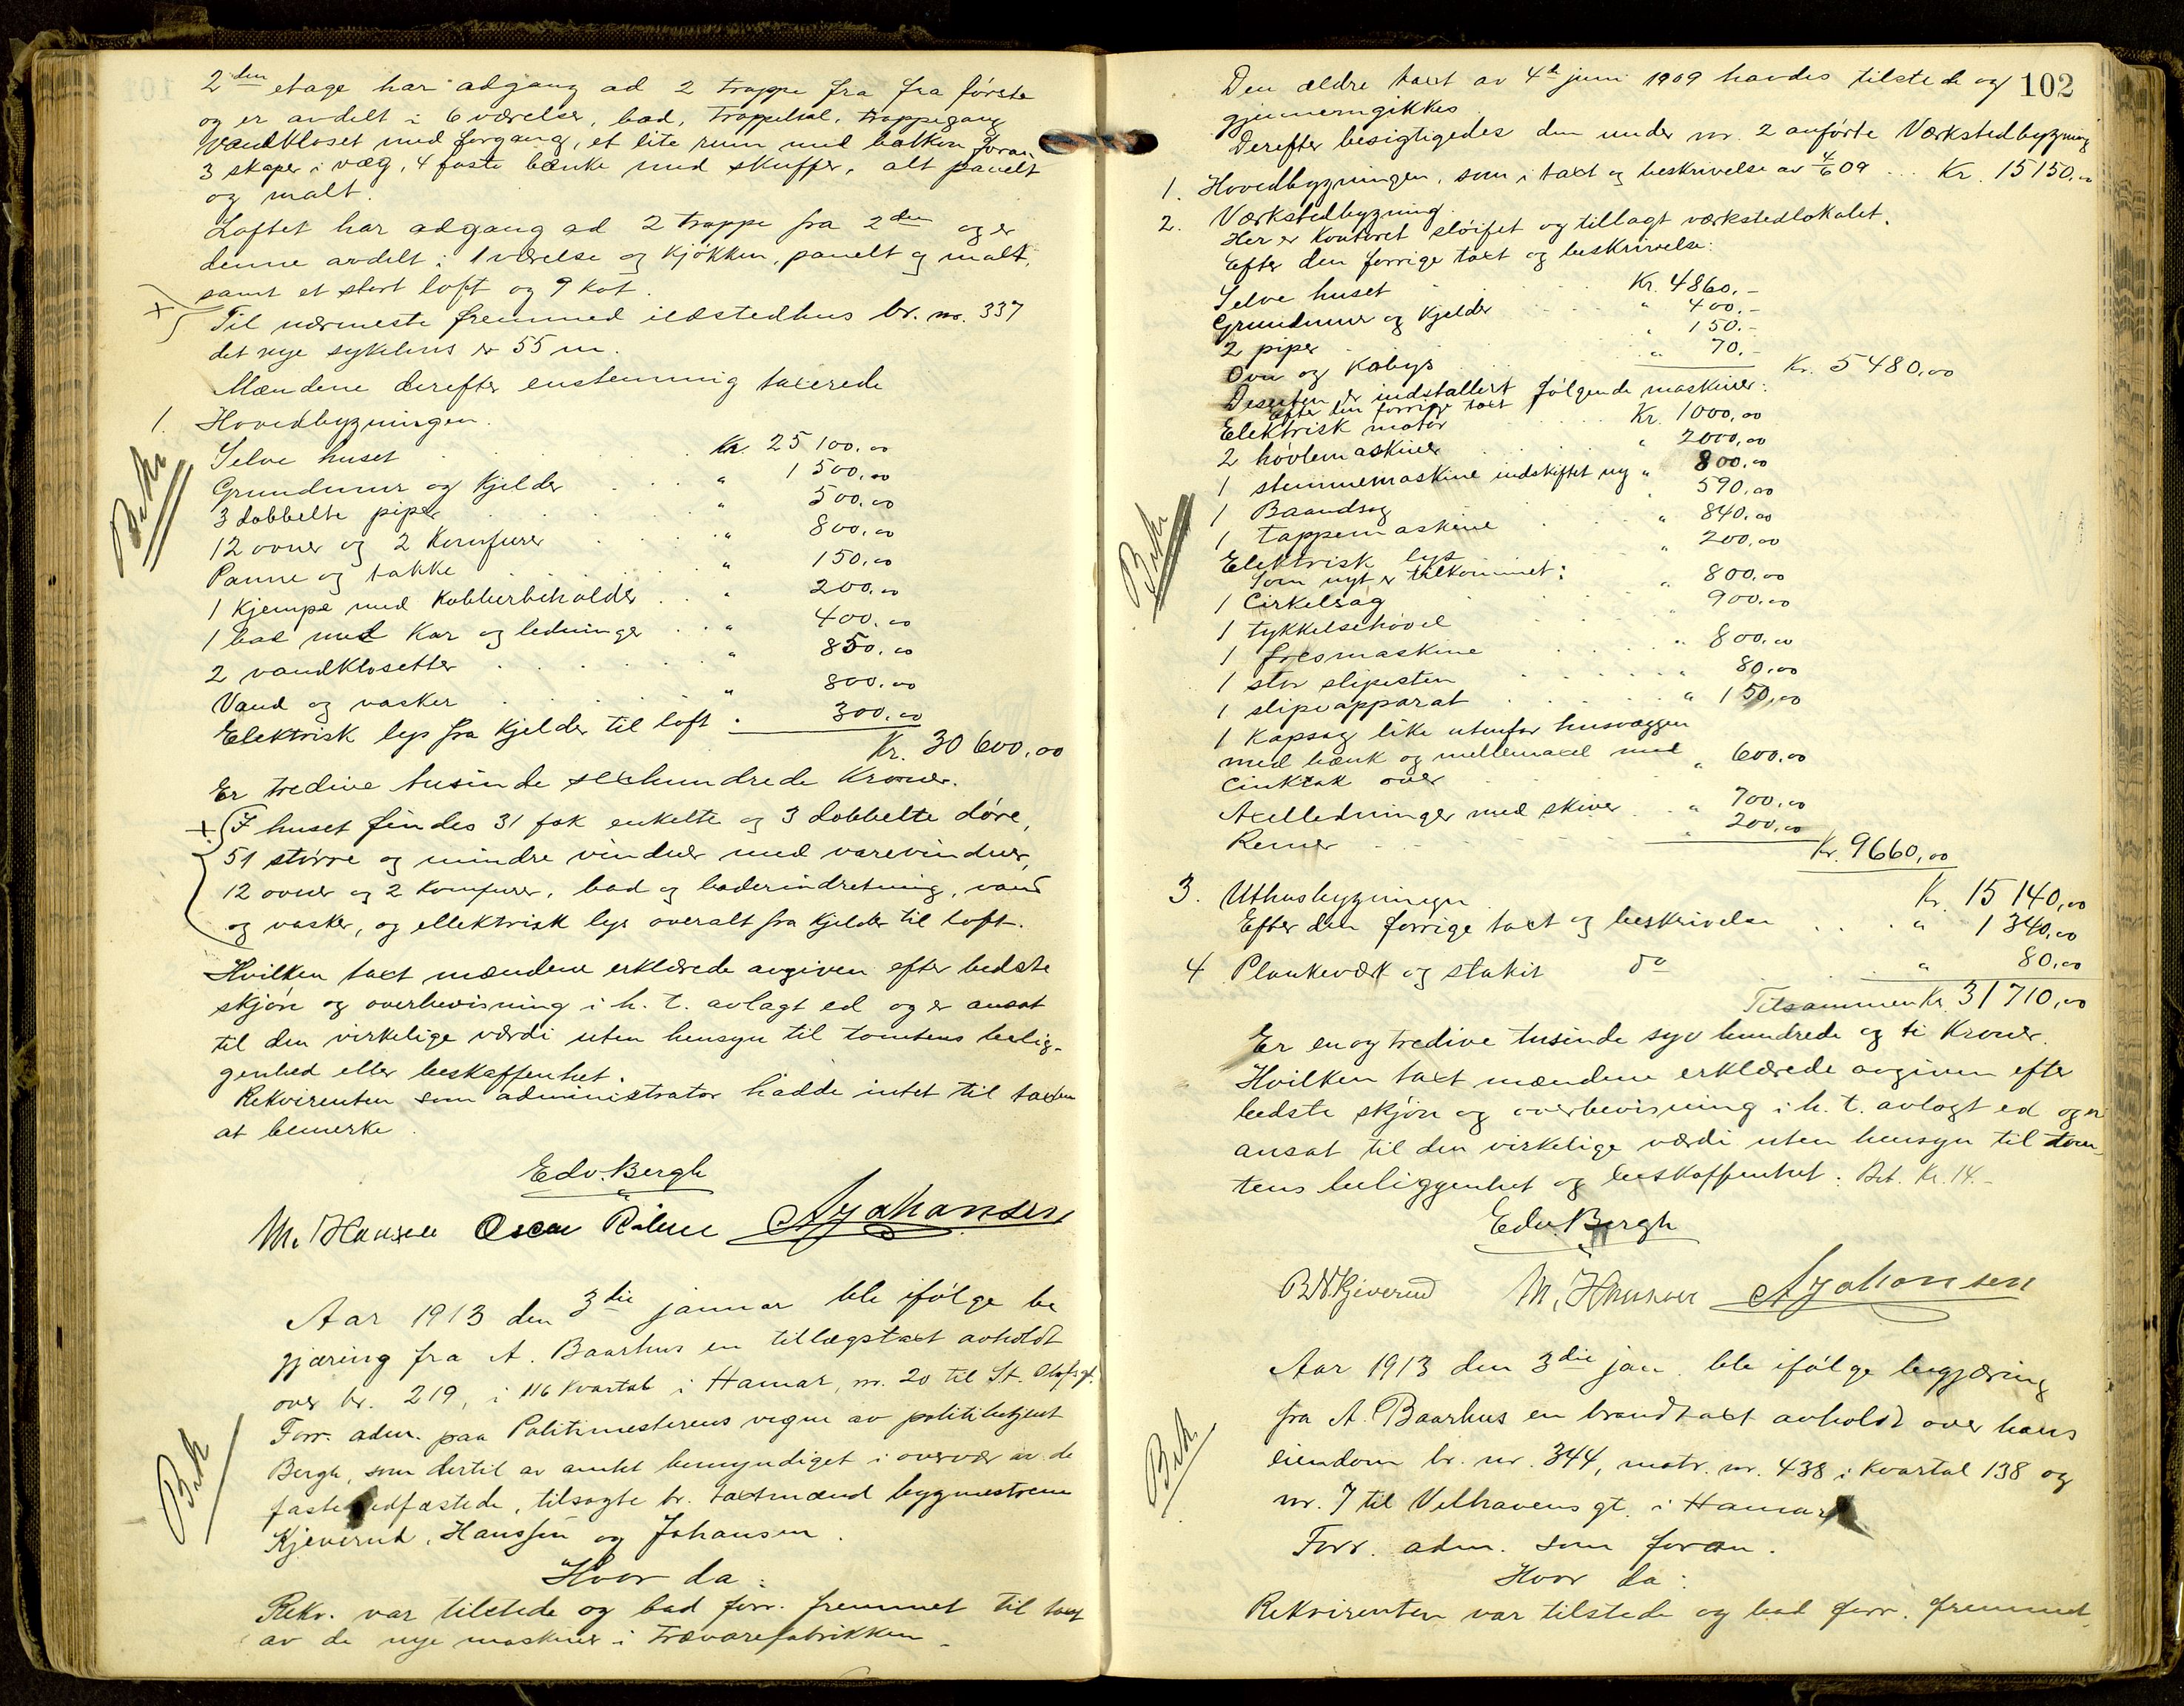 2den etage har adgang ad 2 trappe fra fra første
og er avdelt i 6 værelser, bad, trappehal, trappegang
vandkloset med forgang, et lite rum med balkon foran
3 skaper i væg, 4 faste bænke med skuffer, alt panelt
og malt.
Loftet har adgang ad 2 trappe fra 2den og er
denne avdelt i 1 værelse og kjøkken, panelt og malt,
samt et stort loft og 9 kot.
+ Til nærmeste fremmed ildstedhus br. no. 337
det nye sykehus er 55 m.
Mændene derefter enstemmig taxerede
1. Hovedbygningen.
Bek.
Selve huset . . . Kr. 25 100,00
Grundmur og Kjelder . . . " 1 500,00
3 dobbelte piper . . . " 500,00
12 ovner og 2 Komfurer . . . " 800,00
Panne og takke . . . " 150,00
1 Kjempe med Kobberbeholder . . " 200,00
1 bad med Kar og ledninger . . " 400,00
2 vandklosetter . . . " 850,00
Vand og vasker . . . " 800,00
Elektrisk lys fra Kjelder til loft . 300,00
Kr. 30 600,00
Er tredive tusinde sexhundrede Kroner.
+ I huset findes 31 fak enkelte og 3 dobbelte døre,
51 større og mindre vinduer med varevinduer,
12 ovner og 2 Komfurer, bad og baderindretning, vand
og vasker, og ellektrisk lys overalt fra Kjelder til loft.
Hvilken taxt mændene erklærede avgiven efter bedste
skjøn og overbevisning i h. t. avlagt ed og er ansat
til den virkelige værdi uten hensyn til tomtens belig-
genhed eller beskaffenhet.
Rekvirenten som administrator hadde intet til taxten
at bemerke.
Edv. Bergh
M. Hansen Oscar AJohansen
Aar 1913 den 3die januar ble ifølge be
gjæring fra A. Baarhus en tillægstaxt avholdt
over br. 219, i 116 Kvartal i Hamar, nr. 20 til St. Olafsgt.
Bek
Forr. adm. paa Politimesterens vegne av politibetjent
Bergh, som dertil av amtet bemyndiget i overvær av de
faste edfæstede, tilsagte br. taxtmænd bygmestrene
Kjeverud, Hanssen og Johansen.
Hvor da:
Rekv. var tilstede og bad forr. fremmet til taxt
av de nye maskiner i Trævarefabrikken.
102
Den ældre taxt av 4de juni 1909 havdes tilstede og
gjennemgikkes.
Derefter besigtigedes den under nr. 2 anførte Værkstedbygning
1. Hovedbygningen, som i taxt og beskrivelse av 4/6 09 ... Kr. 15150,00
2. Værkstedbygning.
Her er Kontoret sløifet og tillagt værkstedlokalet.
Efter den forrige taxt og beskrivelse:
Selve huset . . . Kr. 4860.-
Grundmur og Kjelder . . . " 400.-
2 piper . . . " 150.-
Ovn og Kabys . . . " 70.-
Kr. 5480,00
Desuten er indstallert følgende maskiner:
Efter den forrige taxt
Elektrisk motor . . . Kr. 1000,00
2 høvlemaskiner . . . " 2000,00
1 stemmemaskine indskiftet ny " 800,00
1 Baandsag . . . " 590,00
1 tappemaskine . . . " 840,00
Elektrisk lys . . . " 200,00
Som nyt er tilkommet:
Bek
1 Cirkelsag . . . " 800,00
1 tykkelsehøvel . . . " 900,00
1 fresmaskine . . . " 800,00
1 stor slipesten . . . " 80,00
1 slipeapparat . . . " 150,00
1 Kapsag like utenfor husvæggen
med bænk og mellemaxel med
Cinktak over . . . " 600,00
Axelledninger med skiver . . " 700,00
Remer . . . " 200,00
Kr. 9660,00
Kr. 15 140,00
3. Uthusbygningen.
Efter den forrige taxt og beskrivelse . . . " 1 340,00
4 Plankeværk og stakit do . . . " 80,00
Tilsammen Kr. 31710,00
Er en og tredive tusinde syv hundrede og ti Kroner.
Hvilken taxt mændene erklærede avgiven efter
bedste skjøn og overbevisning i h. t. avlagt ed og er
ansat til den virkelige værdi uten hensyn til tom-
tens beliggenhet og beskaffenhet. Bet. Kr. 14.-
Edv. Bergh
BNKjeverud M. Hansen AJohansen
Aar 1913 den 3die jan. ble ifølge begjæring
fra A. Baarhus en brandtaxt avholdt over hans
Bek.
eiendom br. nr. 344, matr. nr. 438 i Kvartal 138 og
nr. 7 til Velhavens gt. i Hamar
Forr. adm. som foran.
Hvor da:
Rekvirenten var tilstede og bad forr. fremmet